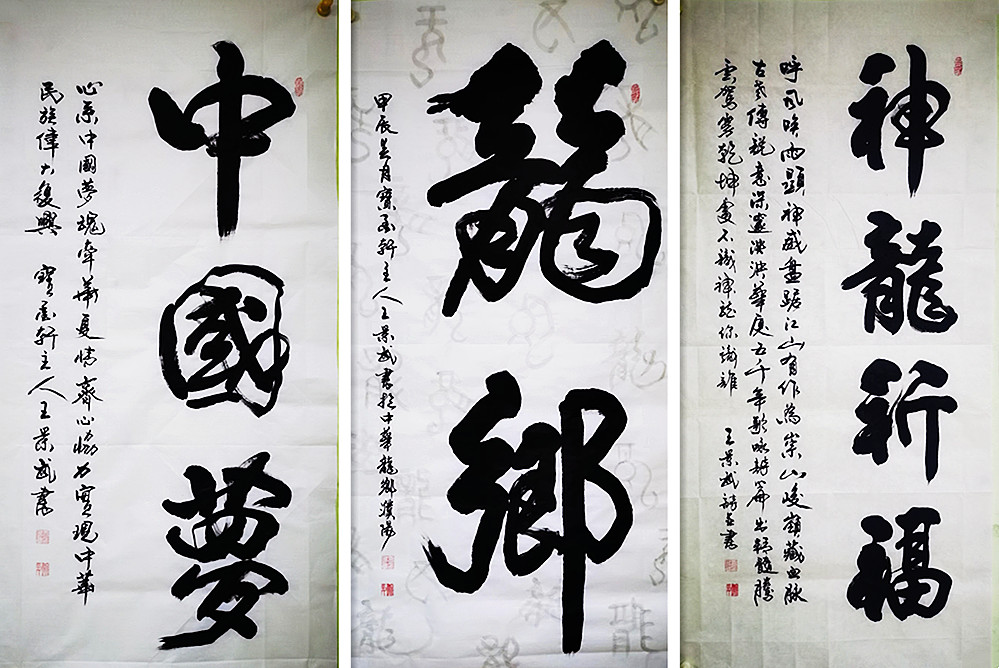 中國夢
心系中國夢魂牽華夏情齊心協力實現中華
民族偉大復興 寶軒主人王景武書
龍鄉
甲辰月寶軒主人王景武書於中華龍鄉濮陽
神龍祈福
呼風喚雨顯神威盤踞江山有作為崇山峻嶺藏血脈
古老傳說意深邃泱泱華夏五千年歌咏詩篇出精髓騰
雲駕霧乾坤不識神龍你識誰 王景武詩並書